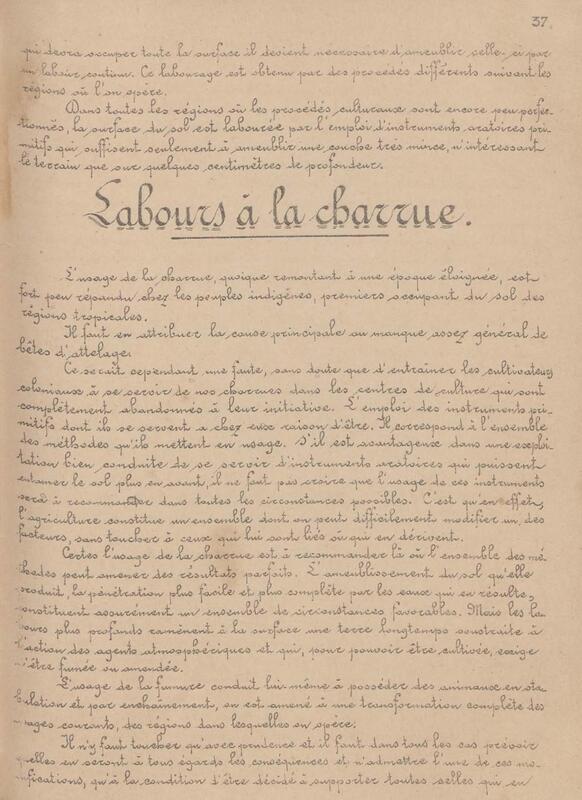 37
qui devra occuper toute la surface il devient nécessaire d'ameublir celle-ci par
un labour continu. Ce labourage est obtenu par des procédés différents suivant les
régions où l'on opère.
Dans toutes les régions où les procédés culturaux sont encore peu perfec-
tionnés, la surface du sol est labourée par l'emploi d'instruments aratoires pri-
mitifs qui suffisent seulement à ameublir une couche très mince, n'intéressant
le terrain que sur quelques centimètres de profondeur.
Labours à la charrue.
L'usage de la charrue, quoique remontant à une époque éloignée, est
fort peu répandu chez les peuples indigènes, premiers occupant du sol des
régions tropicales.
Il faut en attribuer la cause principale au manque assez général de
bêtes d'attelage.
Ce serait cependant une faute, sans doute que d'entraîner les cultivateurs
coloniaux à se servir de nos charrues dans les centres de culture qui sont
complètement abandonnés à leur initiative. L'emploi des instruments pri-
mitifs dont ils se servent a chez eux raison d'être. Il correspond à l'ensemble
des méthodes qu'ils mettent en usage. S'il est avantageux dans une exploi-
tation bien conduite de se servir d'instruments aratoires qui puissent
entamer le sol plus en avant, il ne faut pas croire que l'usage de ces instruments
sera à recommander dans toutes les circonstances possibles. C'est qu'en effet,
l'agriculture constitue un ensemble dont on peut difficilement modifier un des
facteurs, sans toucher à ceux qui lui sont liés où qui en dérivent.
Certes l'usage de la charrue est à recommander là où l'ensemble des mé-
thodes peut amener des résultats parfaits. L'ameublissement du sol qu'elle
produit, la pénétration plus facile et plus complète par les eaux qui en résulte,
constituent assurément un ensemble de circonstances favorables. Mais les la-
bours plus profonds ramènent à la surface une terre longtemps soustraite à
l'action des agents atmosphériques et qui, pour pouvoir être cultivée, exige
d'être fumée ou amendée.
L'usage de la fumure conduit lui-même à posséder des animaux en sta-
bulation et par enchaînement, on est amené à une transformation complète des
usages courants, des régions dans lesquelles on opère.
Il n'y faut toucher qu'avec prudence et il faut dans tous les cas prévoir
quelles en seront à tous égards les conséquences et n'admettre l'une de ces mo-
difications, qu'à la condition d'être décidé à supporter toutes selles qui en